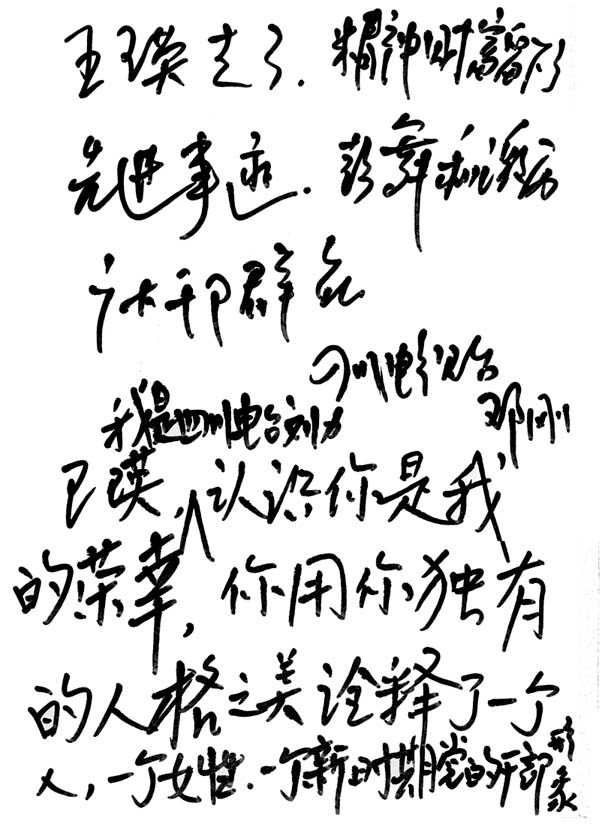 王瑛走了.精神财富留下
先进事迹.鼓舞和激励
广大干部群众
四川电视台
邓刚
我是四川电台刘力
王瑛,认识你是我
的荣幸,你用你独有
的人格之美诠释了一个
人,一个女性.一个新时期党的干部形象